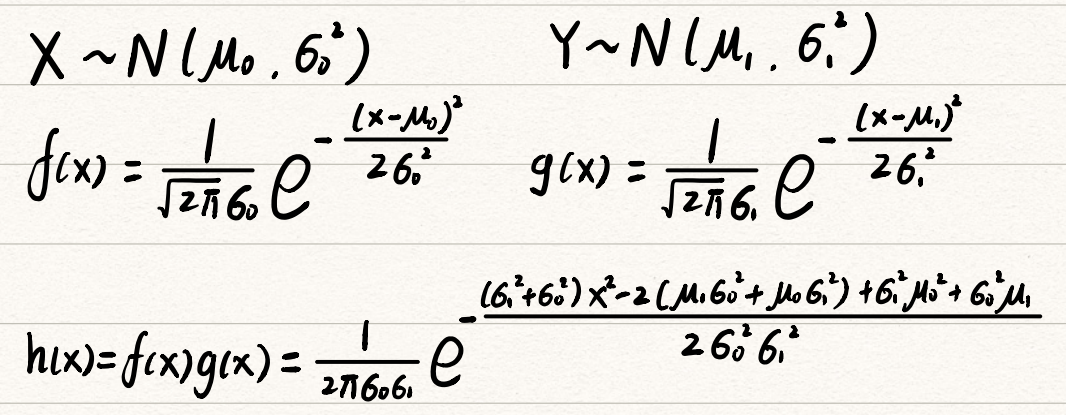 X ~ N(μ₀, σ₀²) Y ~ N(μ₁, σ₁²)
f(x) = 1/(√(2π)σ₀) e^(-(x-μ₀)²/(2σ₀²)) g(x) = 1/(√(2π)σ₁) e^(-(x-μ₁)²/(2σ₁²))
h(x)=f(x)g(x) = 1/(2πσ₀σ₁) e^(-((σ₁²+σ₀²)x²-2(μ₁σ₀²+μ₀σ₁²)+σ₁²μ₀²+σ₀²μ₁)/(2σ₀²σ₁²))